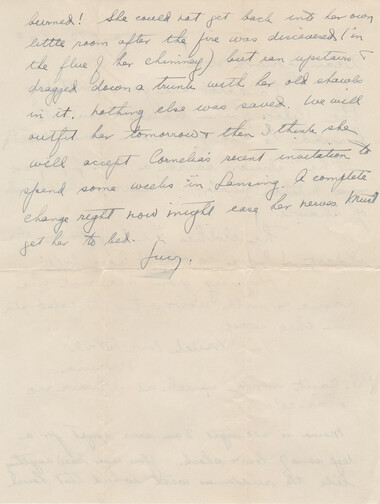 burned! She could not get back into her own
little room after the fire was discovered (in
the flue of her chimney) but ran upstairs &
dragged down a trunk with her old shawls
in it. Nothing else was saved. We will
outfit her tomorrow & then I think she
will accept Cornelia's recent invitation to
spend some weeks in Lansing. A complete
change right now might ease her nerves. Must
get her to bed.
Lucy.